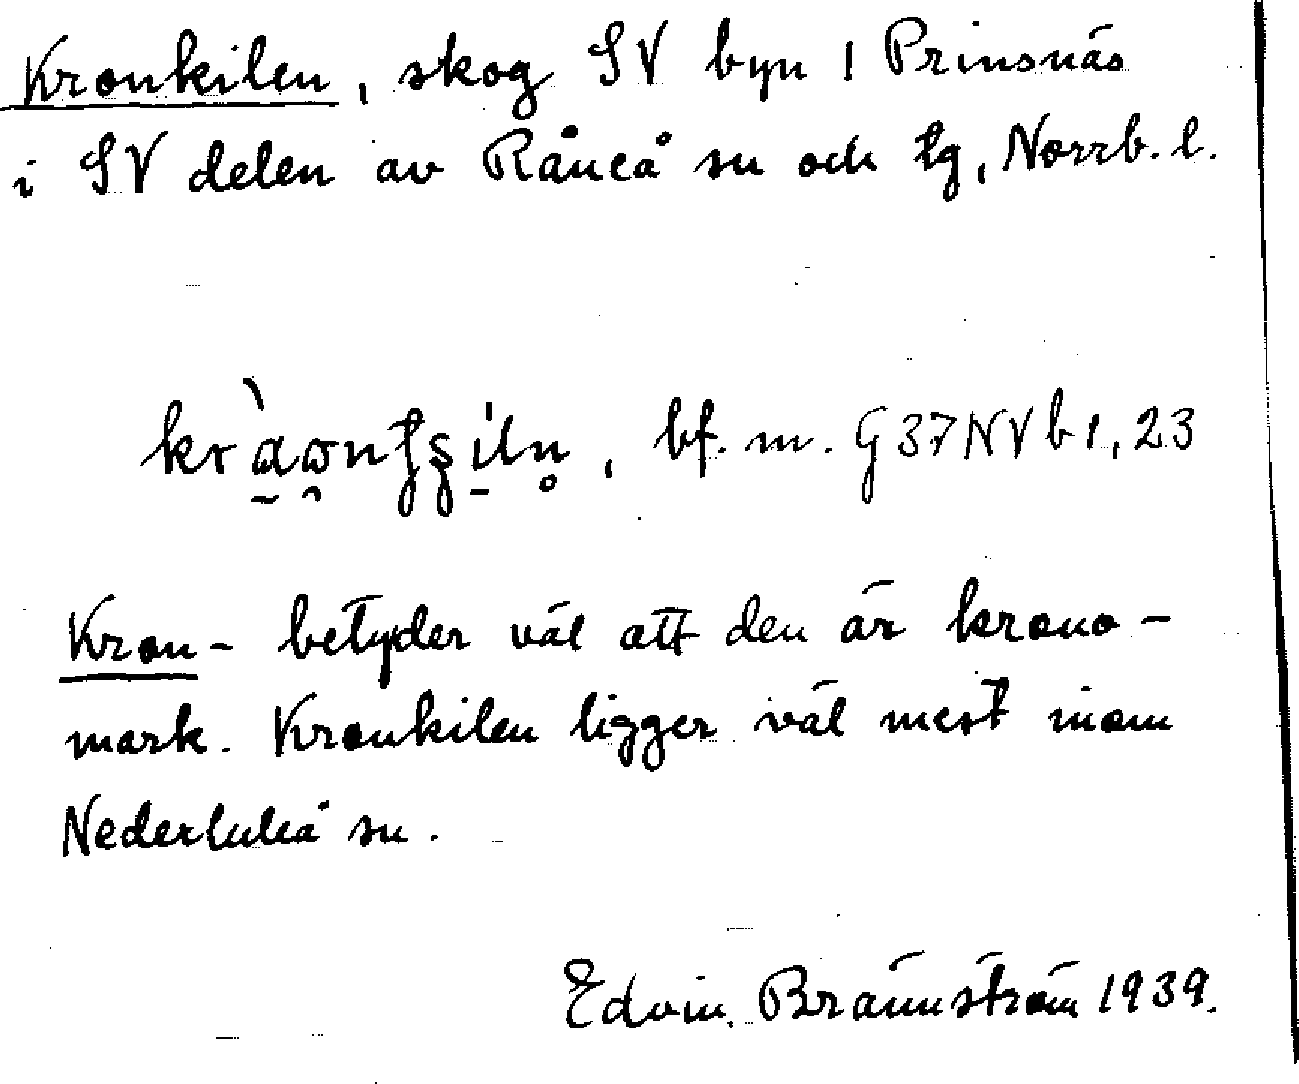 Kronkilen, skog SV byn 1 Prinsnäs
i SV delen av Råneå sn och tg, Norrb. l.
bf. m. G37NVb1,23
Kron- betyder väl att den är krono-
mark. Kronkilen ligger väl mest inom
Nederluleå sn.
Edvin Brännström 1939.